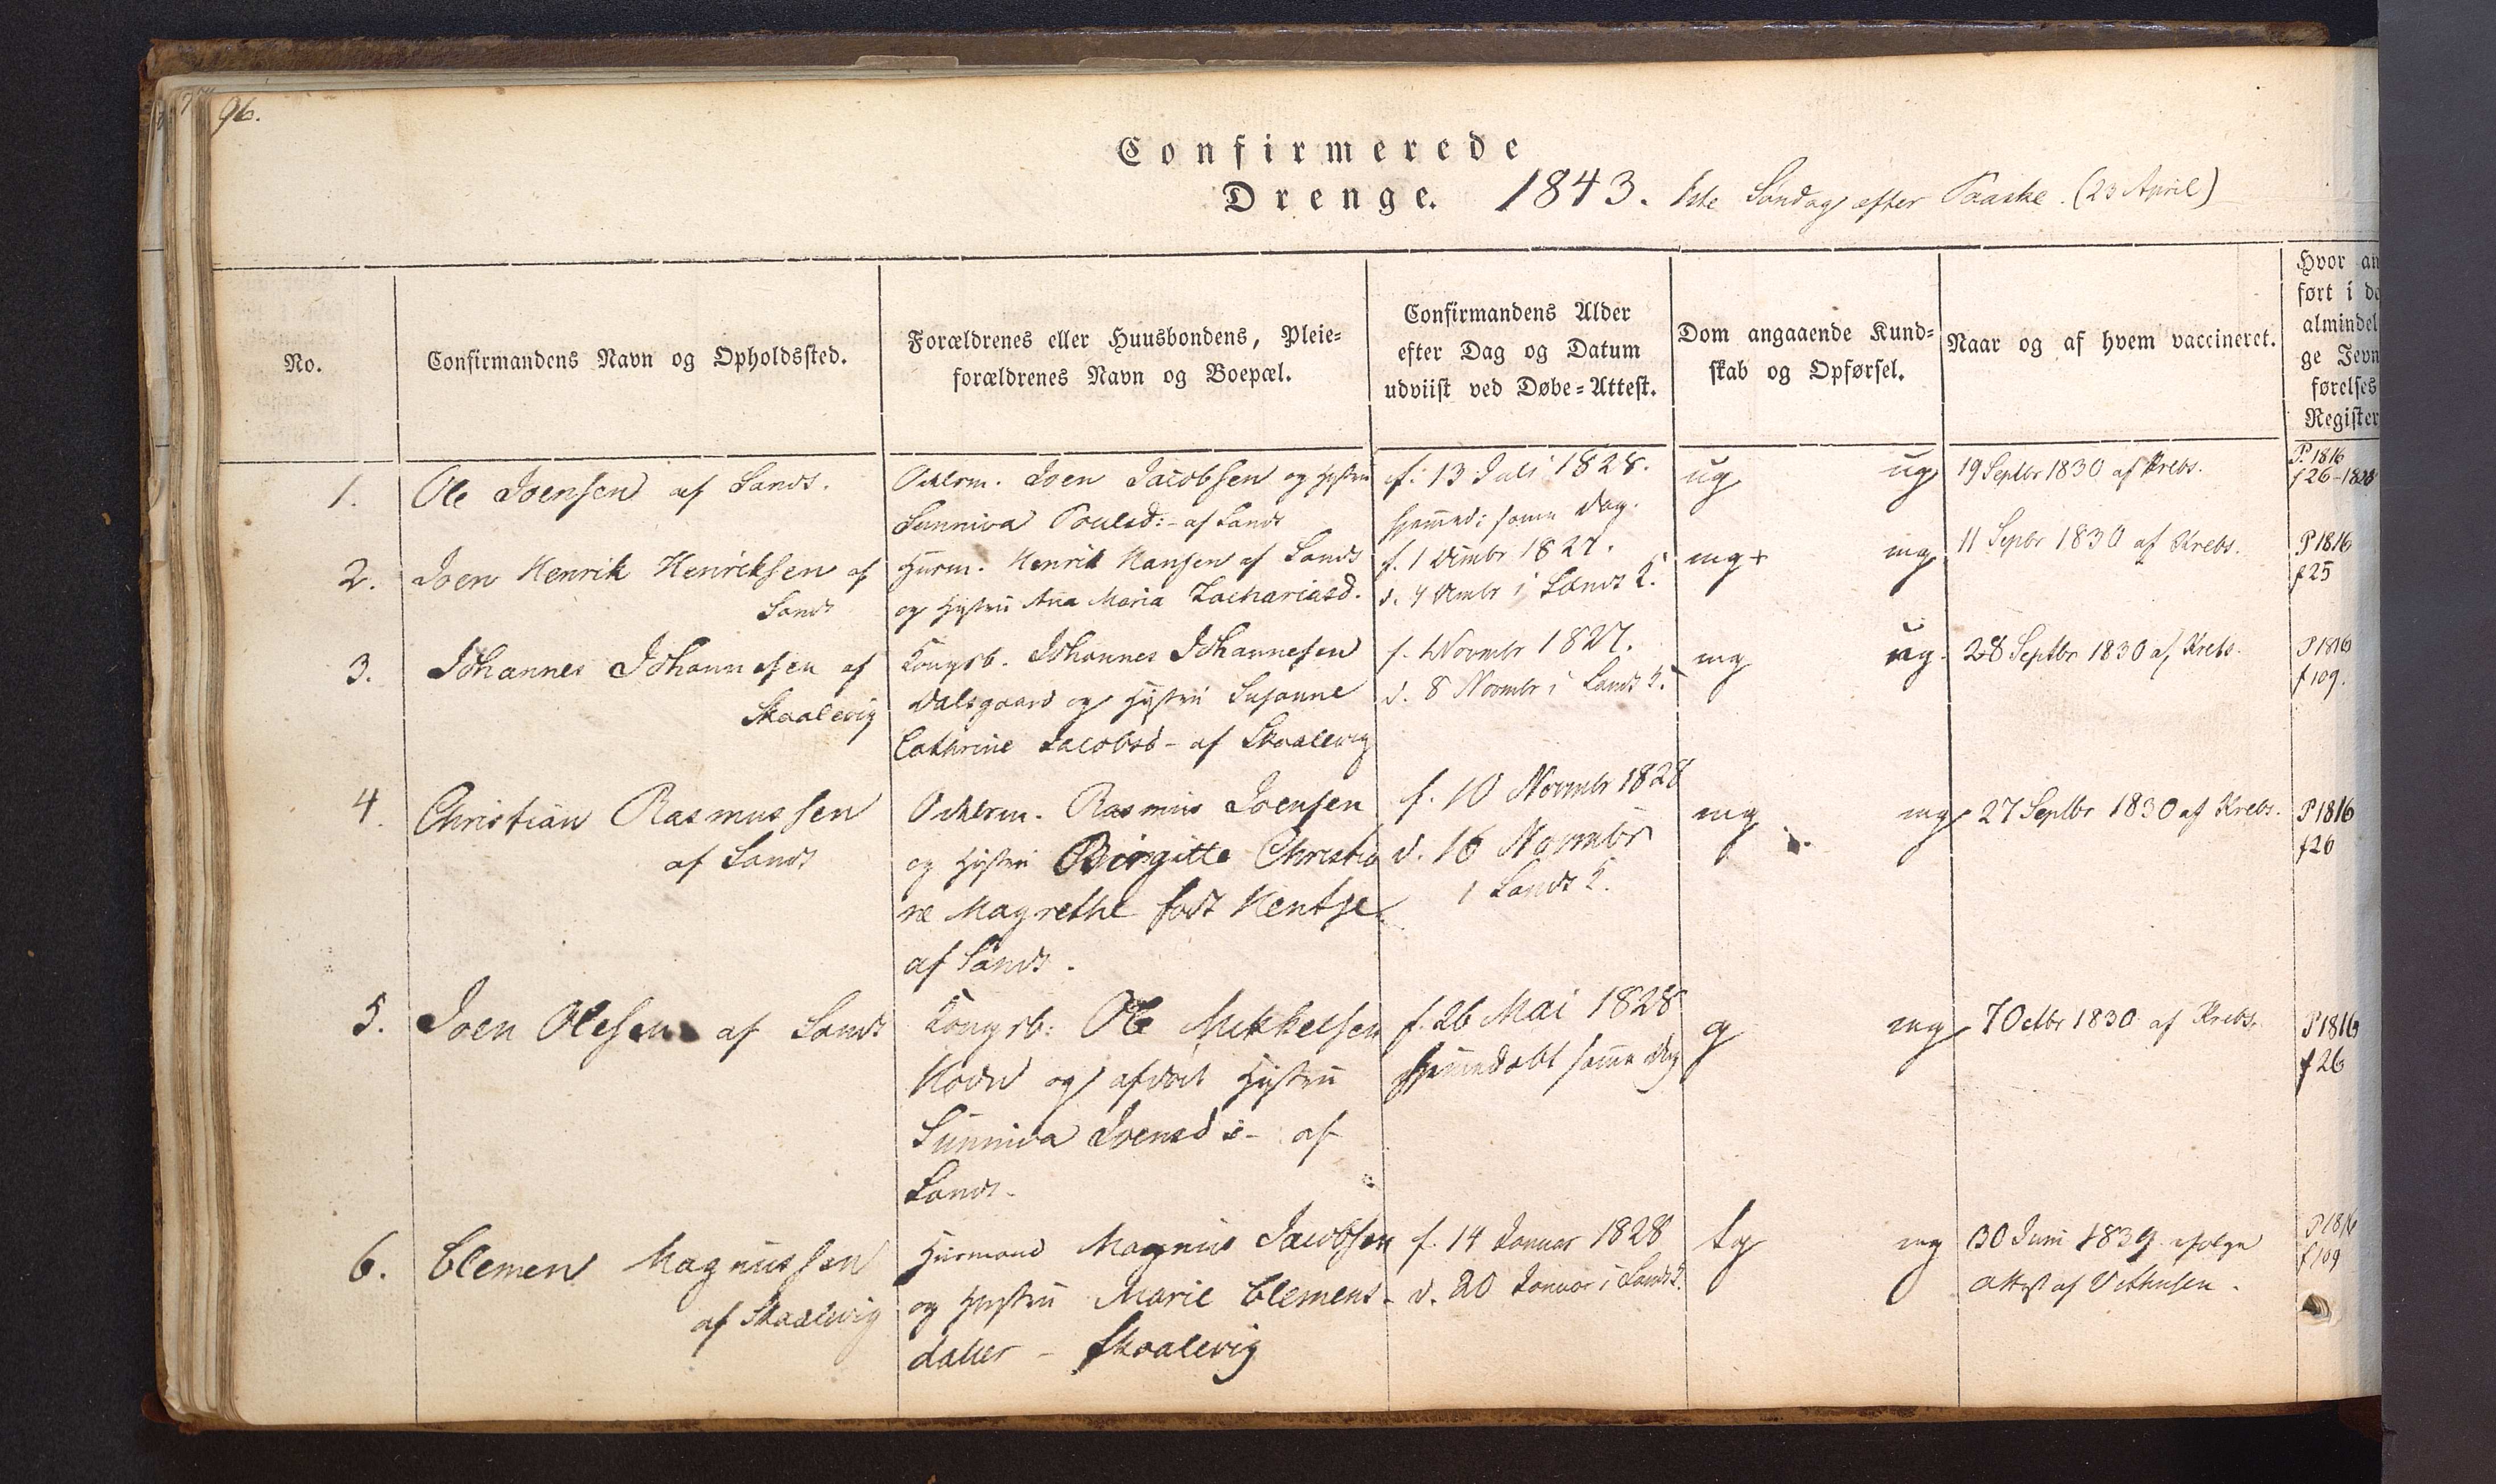 96.
Confirmerede
Drenge. 1843. 1ste Søndag efter Paaske. (23 April)
No.
Confirmandens Navn og Opholdssted.
Forældrenes eller Huusbondens, Pleie-
forældrenes Navn og Boepæl.
Confirmandens Alder
efter Dag og Datum
udviist ved Døbe-Attest.
Dom angaaende Kund-
skab og Opførsel.
Naar og af hvem vaccineret.
Hvor an
ført i de
almindel
ge Jevn
førelses
Register
1.
Ole Joensen af Sands.
Joen Jacobsen og Hustru
Sunniva Poulsd:- af Sands
f. 13 Juli 1828.
hjemmed: samme Dag.
ug ug
19 Septbr 1830 af Krebs.
P. 1816
f 26-1828
2.
Joen Henrik Henriksen af
Sands
Huusm. Henrik Hansen af Sands
og Hustru Ana Maria Zachariasd.
f. 1 Dcmbr 1827.
d. 4 Dcmbr i Sands K.
mg+ mg
11 Sepbr 1830 af Krebs.
P 1816
f 25
3.
Johannes Johannesen af
Skaalevig
Kongsb. Johannes Johannesen
Dalsgaard og Hustru Susanne
Cathrine Jacobsd - af Skaalevig
f. Novmbr 1827.
d. 8 Novmbr i Sands K.
mg ug.
28 Septbr 1830 af Krebs.
P 1816
f 109.
4.
Christian Rasmussen
af Sands
Rasmus Joensen
og Hustru Birgitte Christia
ne Magrethe født Hentze
af Sands.
f. 10 Novmbr 1828
d. 16 Novmbr
i Sands K.
mg mg
27 Septbr 1830 af Krebs.
P 1816
f 26
5.
Joen Olesen af Sands
Kongsb: Ole Mikkelsen
og afdøde Hustru
Sunniva Joensd:- af
Sands.
f. 26 Mai 1828
hjemmedøbt samme Dag
g mg
7 Octbr 1830 af Krebs.
P 1816
f 26
6.
Clemen Magnussen
af Skaalevig
Huusmand Magnus Jacobsen
og Hustru Marie Clemens-
datter - Skaalevig
f. 14 Januar 1828
d. 20 Januar i Sands K.
tg mg
30 Juni 1839 ifølge
Attest af
P 1816
f 109